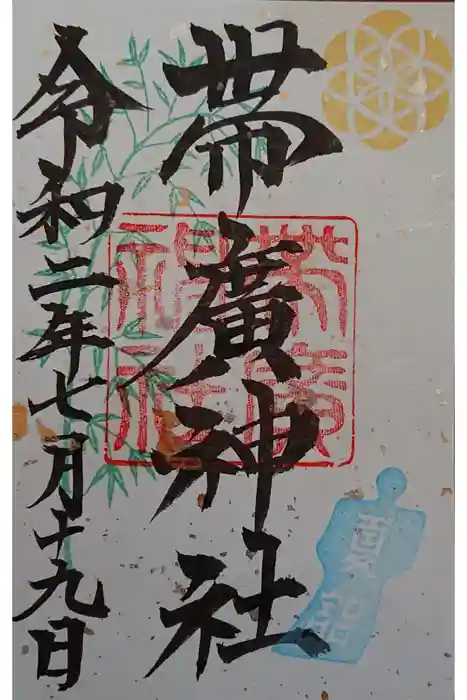 帯廣神社
令和二年七月十九日
帯廣
神社